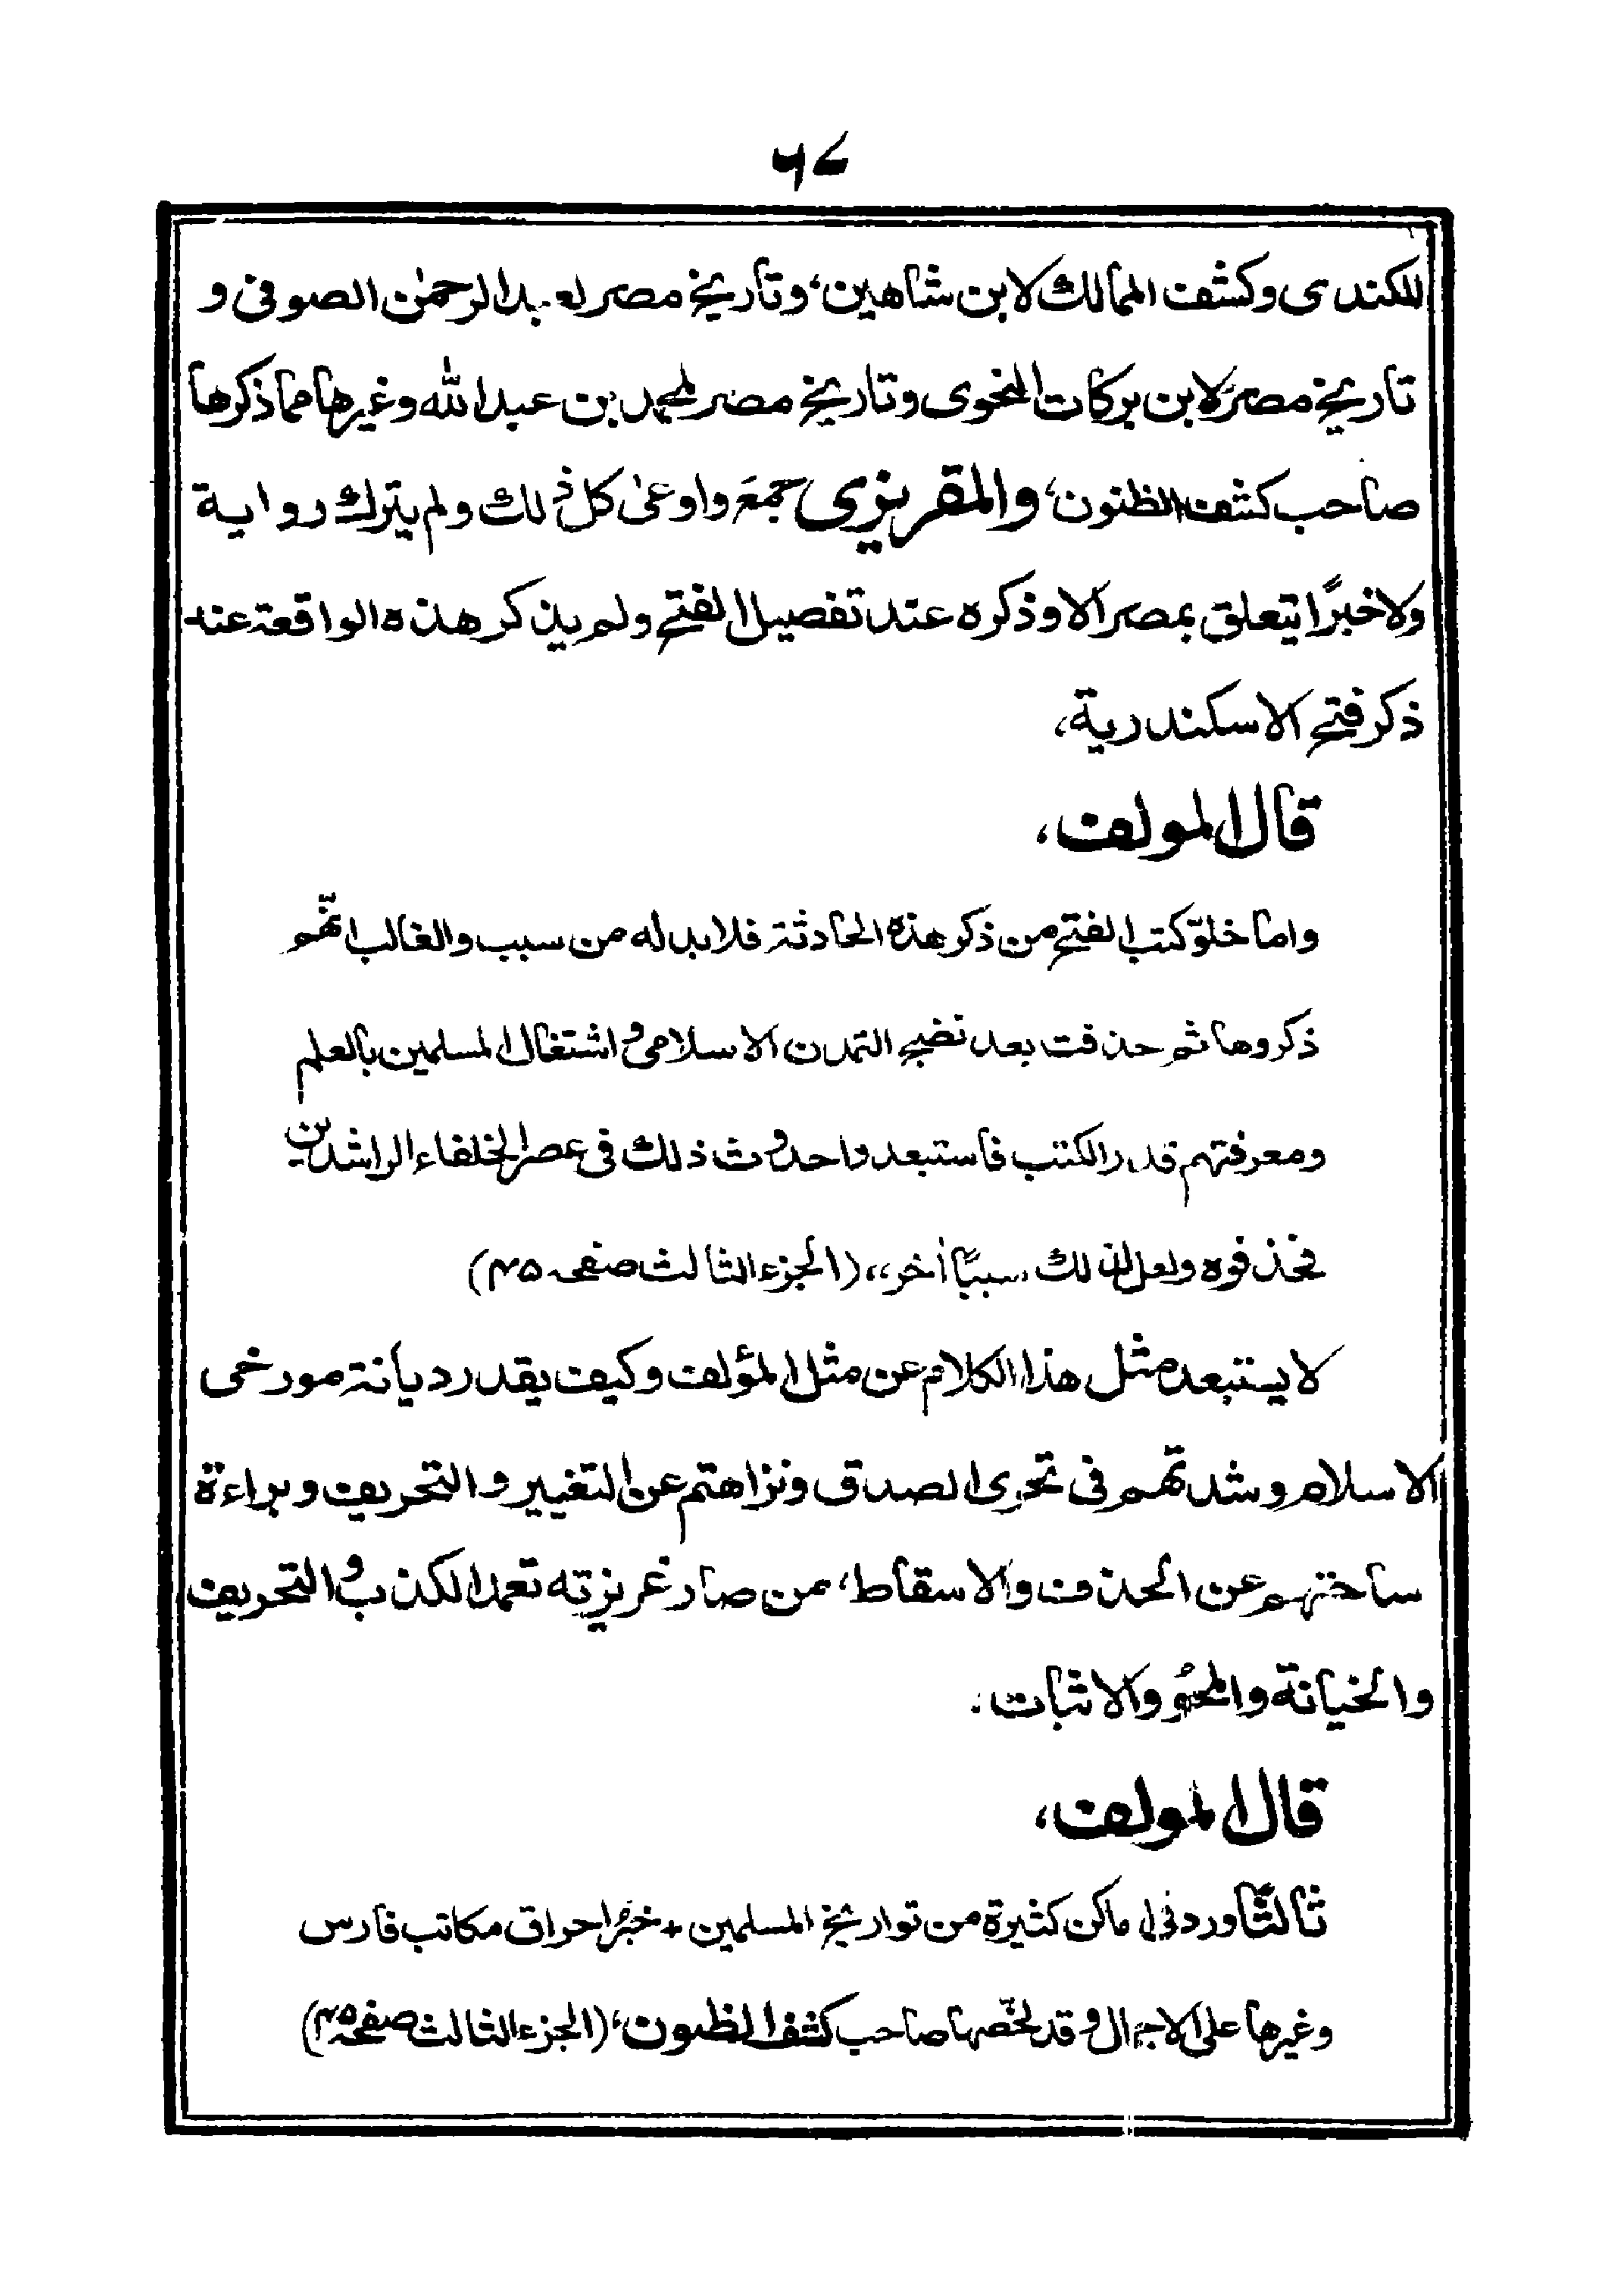 ٦٧
للكندى وكشف الممالك لابن شاهين، وتاريخ مصر لعبد الرحمٰن الصوفى و
تاريخ مصر لابن بركات النحوى وتاريخ مصر لمحمد بن عبد الله وغيرها مما ذكرها
صاحب كشف الظنون، والمقريزى جمعَ واوعىٰ كل ذلك ولم يترك رواية
ولا خبرًا يتعلق بمصر الا وذكره عند تفصيل الفتح ولم يذكر هذه الواقعة عند
ذكر فتح الاسكندرية،
قال المولف،
واما خلوّ كتب الفتح من ذكر هذه الحادثة فلا بد له من سبب والغالب انّهم
ذكروها ثم حذفت بعد نضج التمدن الاسلامى واشتغال المسلمين بالعلم
ومعرفتهم قدر الكتب فاستبعدوا حدوث ذلك فى عصر الخلفاء الراشدين
فحذفوه ولعل لذلك سببًا اٰخر،، (الجزء الثالث صفحه ۴۵)
لا يستبعد مثل هذا الكلام عن مثل المؤلف وكيف يقدر ديانة مورخى
الاسلام وشدتهم فى تحرى الصدق ونزاهتهم عن التغيير والتحريف وبراءة
ساحتهم عن الحذف والاسقاط، من صار غريزته تعمد الكذب والتحريف
والخيانة والمحوُ والاثبات،
قال المولف،
ثالثًا ورد فى اماكن كثيرة من تواريخ المسلمين + خبرُ احراق مكاتب فارس
وغيرها على الاجمال وقد لخّصها صاحب كشف الظنون، (الجزء الثالث صفحه ۴۵)